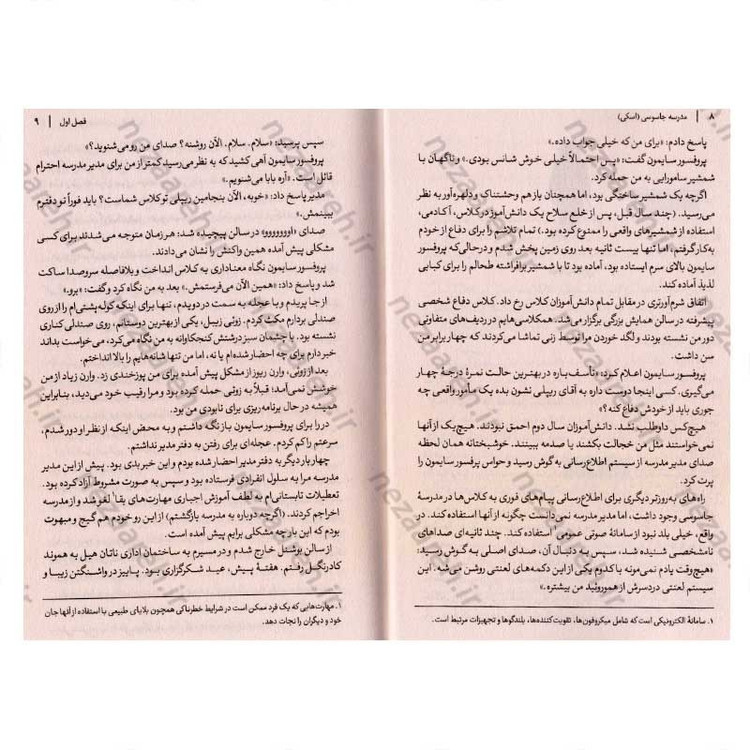 ۸ | مدرسه جاسوسی (اسکی)
پاسخ دادم: «برای من که خیلی جواب داده.»
پروفسور سایمون گفت: «پس احتمالاً خیلی خوش شانس بودی.» و ناگهان با
شمشیر سامورایی به من حمله کرد.
اگرچه یک شمشیر ساختگی بود، اما همچنان باز هم وحشتناک و دلهره‌آور به نظر
می‌رسید. (چند سال قبل، پس از خلع سلاح یک دانش‌آموز در کلاس، آکادمی،
استفاده از شمشیرهای واقعی را ممنوع کرده بود.) تمام تلاشم را برای دفاع از خودم
به‌کار گرفتم، اما تنها بیست ثانیه بعد روی زمین پخش شدم و درحالی‌که پروفسور
سایمون بالای سرم ایستاده بود، آماده بود تا با شمشیر برافراشته طحالم را برای کبابی
لذیذ آماده کند.
اتفاق شرم‌آورتری در مقابل تمام دانش‌آموزان کلاس رخ داد. کلاس دفاع شخصی
پیشرفته در سالن همایش بزرگی برگزار می‌شد. همکلاسی‌هایم در ردیف‌های متفاوتی
دور من نشسته بودند و لگد خوردن مرا توسط زنی تماشا می‌کردند که چهار برابر من
سن داشت.
پروفسور سایمون اعلام کرد: «تأسف‌باره در بهترین حالت نمرهٔ درجهٔ چهار
می‌گیری. کسی اینجا دوست داره به آقای ریپلی نشون بده یک مأمور واقعی چه
جوری باید از خودش دفاع کنه؟»
هیچ‌کس داوطلب نشد. دانش‌آموزان سال دوم احمق نبودند. هیچ‌یک از آنها
نمی‌خواستند مثل من خجالت بکشند یا صدمه ببینند. خوشبختانه همان لحظه
صدای مدیر مدرسه از سیستم اطلاع‌رسانی به گوش رسید و حواس پرفسور سایمون را
پرت کرد.
راه‌های به‌روزتر دیگری برای اطلاع‌رسانی پیام‌های فوری به کلاس‌ها در مدرسهٔ
جاسوسی وجود داشت، اما مدیر مدرسه نمی‌دانست چگونه از آنها استفاده کند. در
واقع، خیلی بلد نبود از سامانهٔ صوتی عمومی¹ استفاده کند. چند ثانیه‌ای صداهای
نامشخصی شنیده شد، سپس به دنبال آن، صدای اصلی به گوش رسید:
«هیچ‌وقت یادم نمی‌مونه با کدوم یکی از این دکمه‌های لعنتی روشن می‌شه. این
سیستم لعنتی دردسرش از همورویید من بیشتره.»
۱. سامانهٔ الکترونیکی است که شامل میکروفون‌ها، تقویت‌کننده‌ها، بلندگوها و تجهیزات مرتبط است.
فصل اول | ۹
سپس پرسید: «سلام. سلام. الآن روشنه؟ صدای من رو می‌شنوید؟»
پروفسور سایمون آهی کشید که به نظر می‌رسید کمتر از من برای مدیر مدرسه احترام
قائل است. «آره بابا می‌شنویم.»
مدیر پاسخ داد: «خوبه، الآن بنجامین ریپلی تو کلاس شماست؟ باید فوراً تو دفترم
ببینمش.»
صدای «اووووووو» در سالن پیچید؛ هر زمان متوجه می‌شدند برای کسی
مشکلی پیش آمده همین واکنش را نشان می‌دادند.
پروفسور سایمون نگاه معناداری به کلاس انداخت و بلافاصله سروصدا ساکت
شد و پاسخ داد: «همین الآن می‌فرستمش.» بعد به من نگاه کرد و گفت: «برو.»
از جا پریدم و با عجله به سمت در دویدم، تنها برای اینکه کوله‌پشتی‌ام را از روی
صندلی بردارم مکث کردم. زوئی زیبل، یکی از بهترین دوستانم، روی صندلی کناری
نشسته بود. با چشمان سبز درشتش کنجکاوانه به من نگاه می‌کرد، می‌خواست بداند
خبر دارم برای چه احضار شده‌ام یا نه، اما من تنها شانه‌هایم را بالا انداختم.
بعد از زوئی، وارن ریوز از مشکل پیش آمده برای من پوزخندی زد. وارن زیاد از من
خوشش نمی‌آمد؛ قبلاً به زوئی حمله کرده بود و مرا رقیب خود می‌دید، بنابراین
همیشه در حال برنامه‌ریزی برای نابودی من بود.
در را برای پروفسور سایمون باز نگه داشتم و به محض اینکه از نظر او دور شدم،
سرعتم را کم کردم. عجله‌ای برای رفتن به دفتر مدیر نداشتم.
چهار بار دیگر به دفتر مدیر احضار شده بودم و این خبر بدی بود. پیش از این مدیر
مدرسه مرا به سلول انفرادی فرستاده بود و سپس به صورت مشروط آزاد کرده بود.
تعطیلات تابستانی‌ام به لطف آموزش اجباری مهارت‌های بقا¹ لغو شد و از مدرسه
اخراجم کردند. (اگرچه دوباره به مدرسه بازگشتم) از این رو خودم هم گیج و مبهوت
بودم که این بار چه مشکلی برایم پیش آمده است.
از سالن بوشنل خارج شدم و در مسیرم به ساختمان اداری ناتان هیل به هموند
کادرنگل رفتم. هفتهٔ پیش، عید شکرگزاری بود. پاییز در واشنگتن زیبا و
۱. مهارت‌هایی که یک فرد ممکن است در شرایط خطرناکی همچون بلایای طبیعی با استفاده از آنها جان
خود و دیگران را نجات دهد.
nezaareh.ir